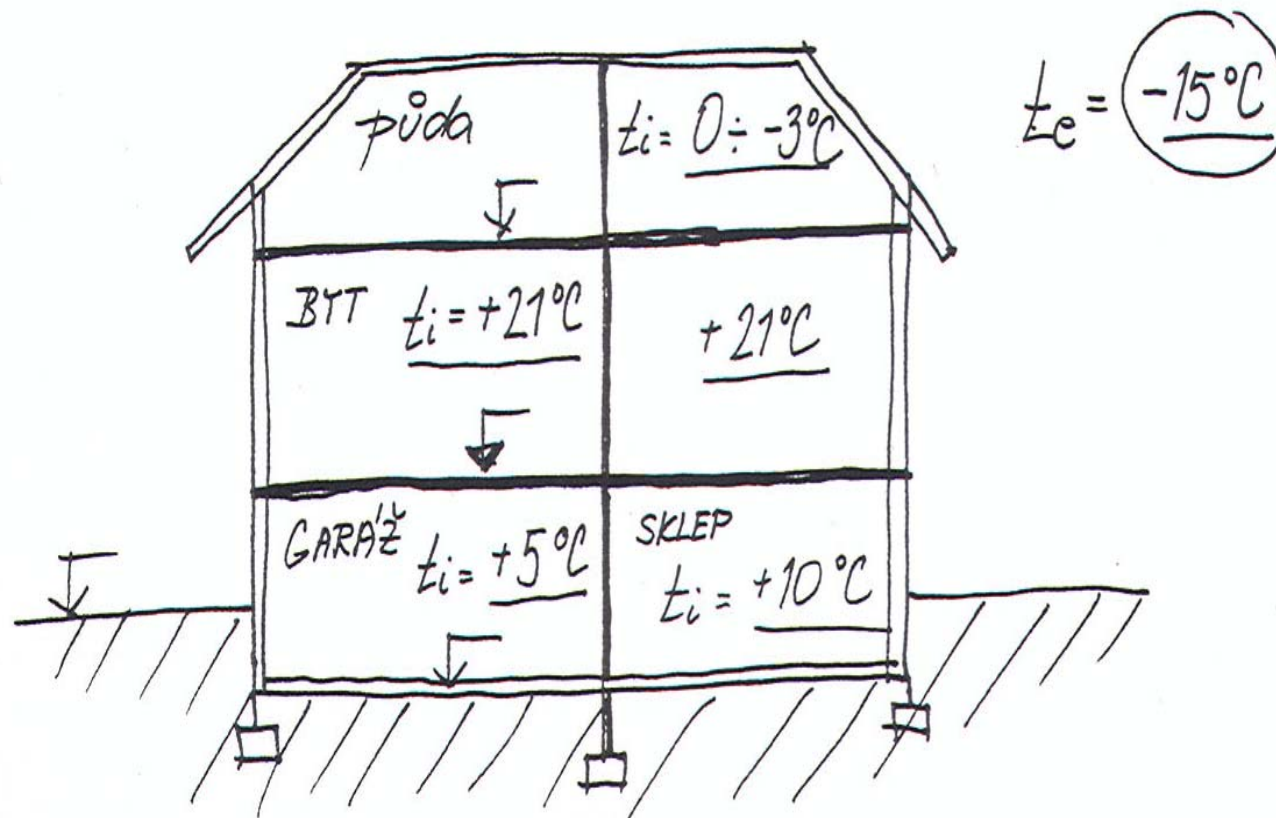 půda
ti = 0 ÷ -3°C
te = -15°C
BYT ti = +21°C
+21°C
GARÁŽ ti = +5°C
SKLEP
ti = +10°C